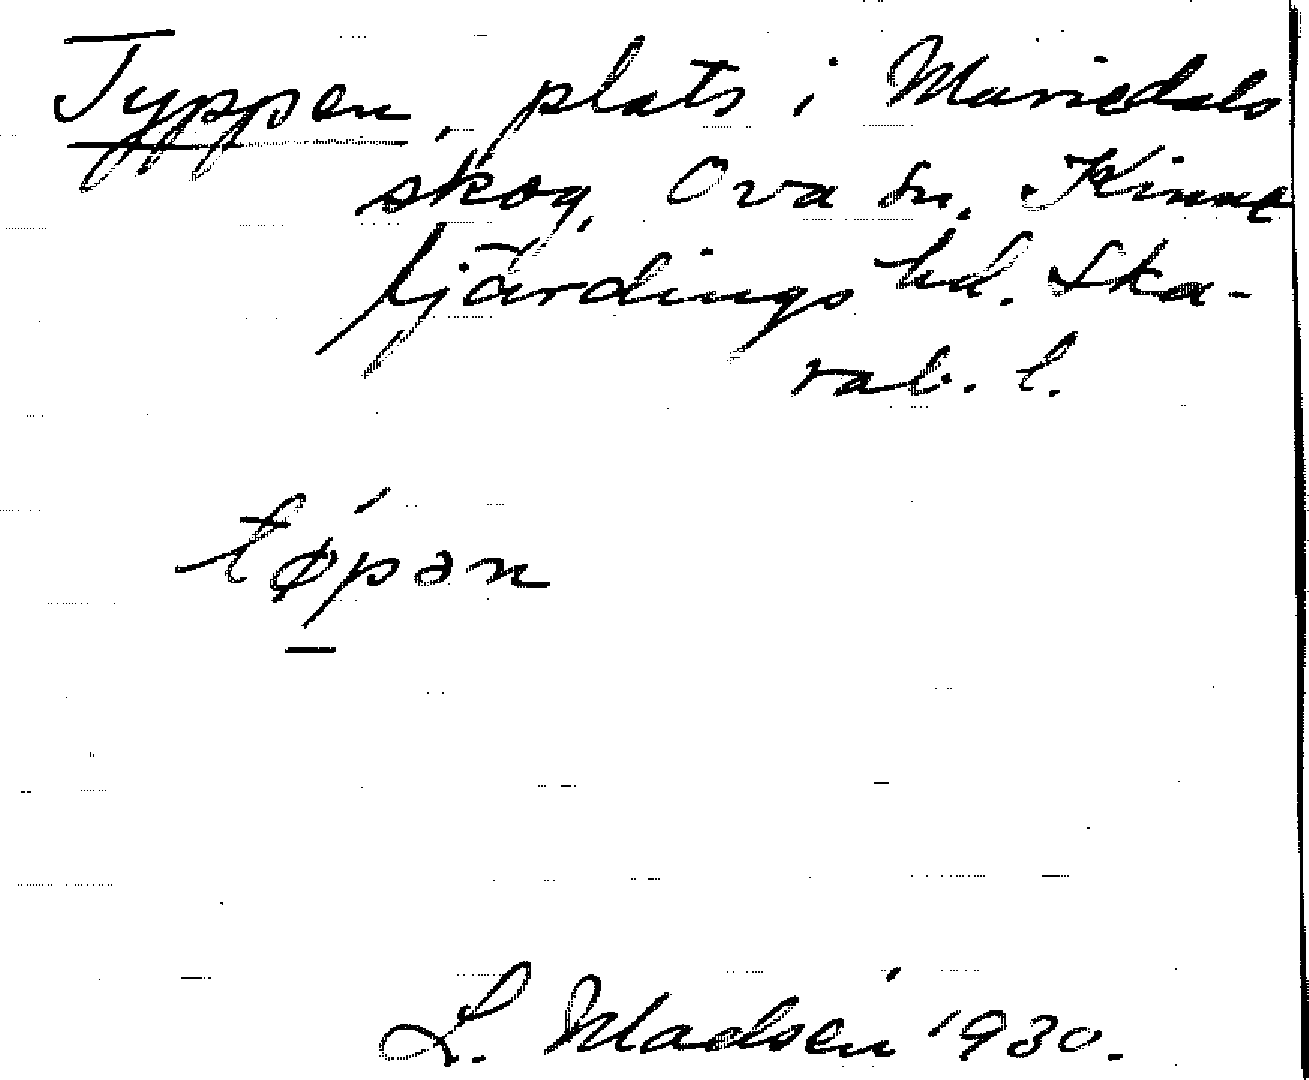 Typpen, plats i Mariedals
skog, Ova sn. Kinne
fjärdings hd. Ska-
rab. l.
tø´pən
L. Madsén 1930.